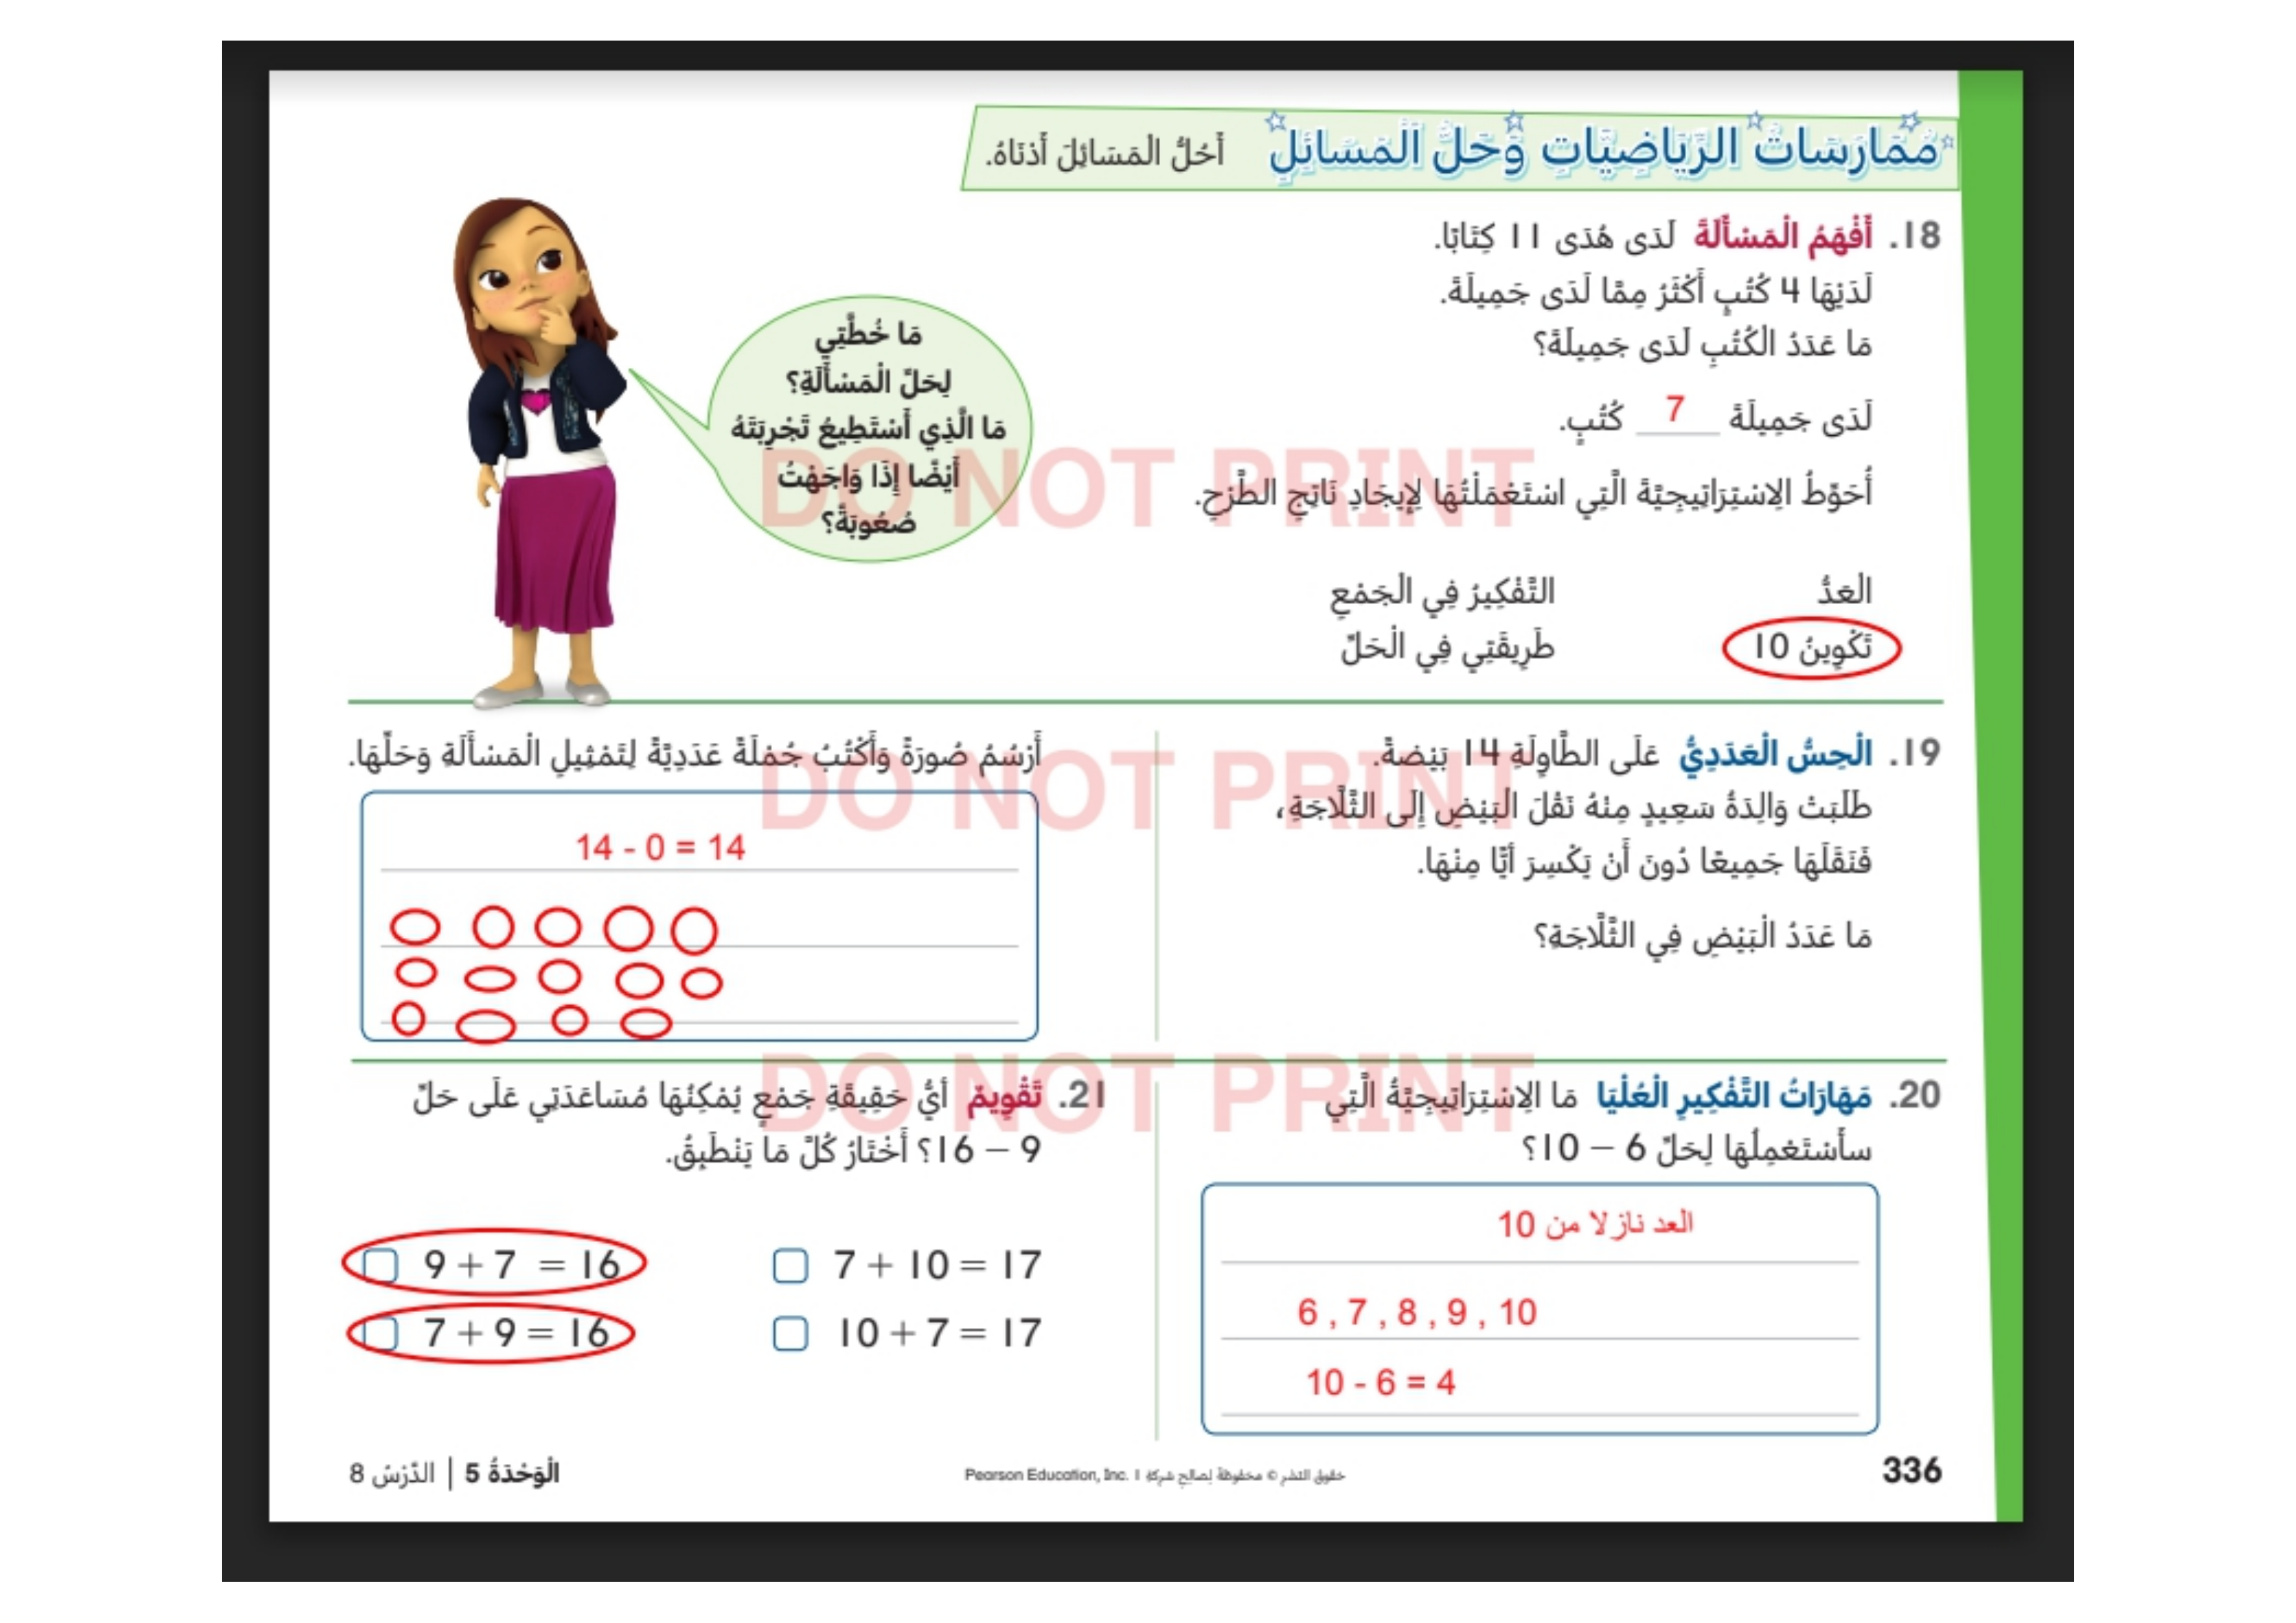 مُمَارَسَاتُ الرِّيَاضِيَّاتِ وَحَلُّ الْمَسَائِلِ أَحُلُّ الْمَسَائِلَ أَدْنَاهُ.
18. أَفْهَمُ الْمَسْأَلَةَ لَدَى هُدَى 11 كِتَابًا.
لَدَيْهَا 4 كُتُبٍ أَكْثَرُ مِمَّا لَدَى جَمِيلَةَ.
مَا عَدَدُ الْكُتُبِ لَدَى جَمِيلَةَ؟
لَدَى جَمِيلَةَ 7 كُتُبٍ.
أُحَوِّطُ الِاسْتِرَاتِيجِيَّةَ الَّتِي اسْتَعْمَلْتُهَا لِإِيجَادِ نَاتِجِ الطَّرْحِ.
الْعَدُّ التَّفْكِيرُ فِي الْجَمْعِ
تَكْوِينُ 10 طَرِيقَتِي فِي الْحَلِّ
مَا خُطَّتِي
لِحَلِّ الْمَسْأَلَةِ؟
مَا الَّذِي أَسْتَطِيعُ تَجْرِبَتَهُ
أَيْضًا إِذَا وَاجَهْتُ
صُعُوبَةً؟
DO NOT PRINT
19. الْحِسُّ الْعَدَدِيُّ عَلَى الطَّاوِلَةِ 14 بَيْضةً.
طَلَبَتْ وَالِدَةُ سَعِيدٍ مِنْهُ نَقْلَ الْبَيْضِ إِلَى الثَّلَّاجَةِ،
فَنَقَلَهَا جَمِيعًا دُونَ أَنْ يَكْسِرَ أَيًّا مِنْهَا.
مَا عَدَدُ الْبَيْضِ فِي الثَّلَّاجَةِ؟
أَرْسُمُ صُورَةً وَأَكْتُبُ جُمْلَةً عَدَدِيَّةً لِتَمْثِيلِ الْمَسْأَلَةِ وَحَلِّهَا.
14 - 0 = 14
DO NOT PRINT
20. مَهَارَاتُ التَّفْكِيرِ الْعُلْيَا مَا الِاسْتِرَاتِيجِيَّةُ الَّتِي
سأَسْتَعْمِلُهَا لِحَلِّ 6 − 10؟
العد نازلا من 10
6 , 7 , 8 , 9 , 10
10 - 6 = 4
21. تَقْوِيمٌ أَيُّ حَقِيقَةِ جَمْعٍ يُمْكِنُهَا مُسَاعَدَتِي عَلَى حَلِّ
9 − 16؟ أَخْتَارُ كُلَّ مَا يَنْطَبِقُ.
9 + 7 = 16 7 + 10 = 17
7 + 9 = 16 10 + 7 = 17
DO NOT PRINT
336
حقوق النشر © محفوظة لصالح شركة Pearson Education, Inc. 1
الْوَحْدَةُ 5 | الدَّرْسُ 8